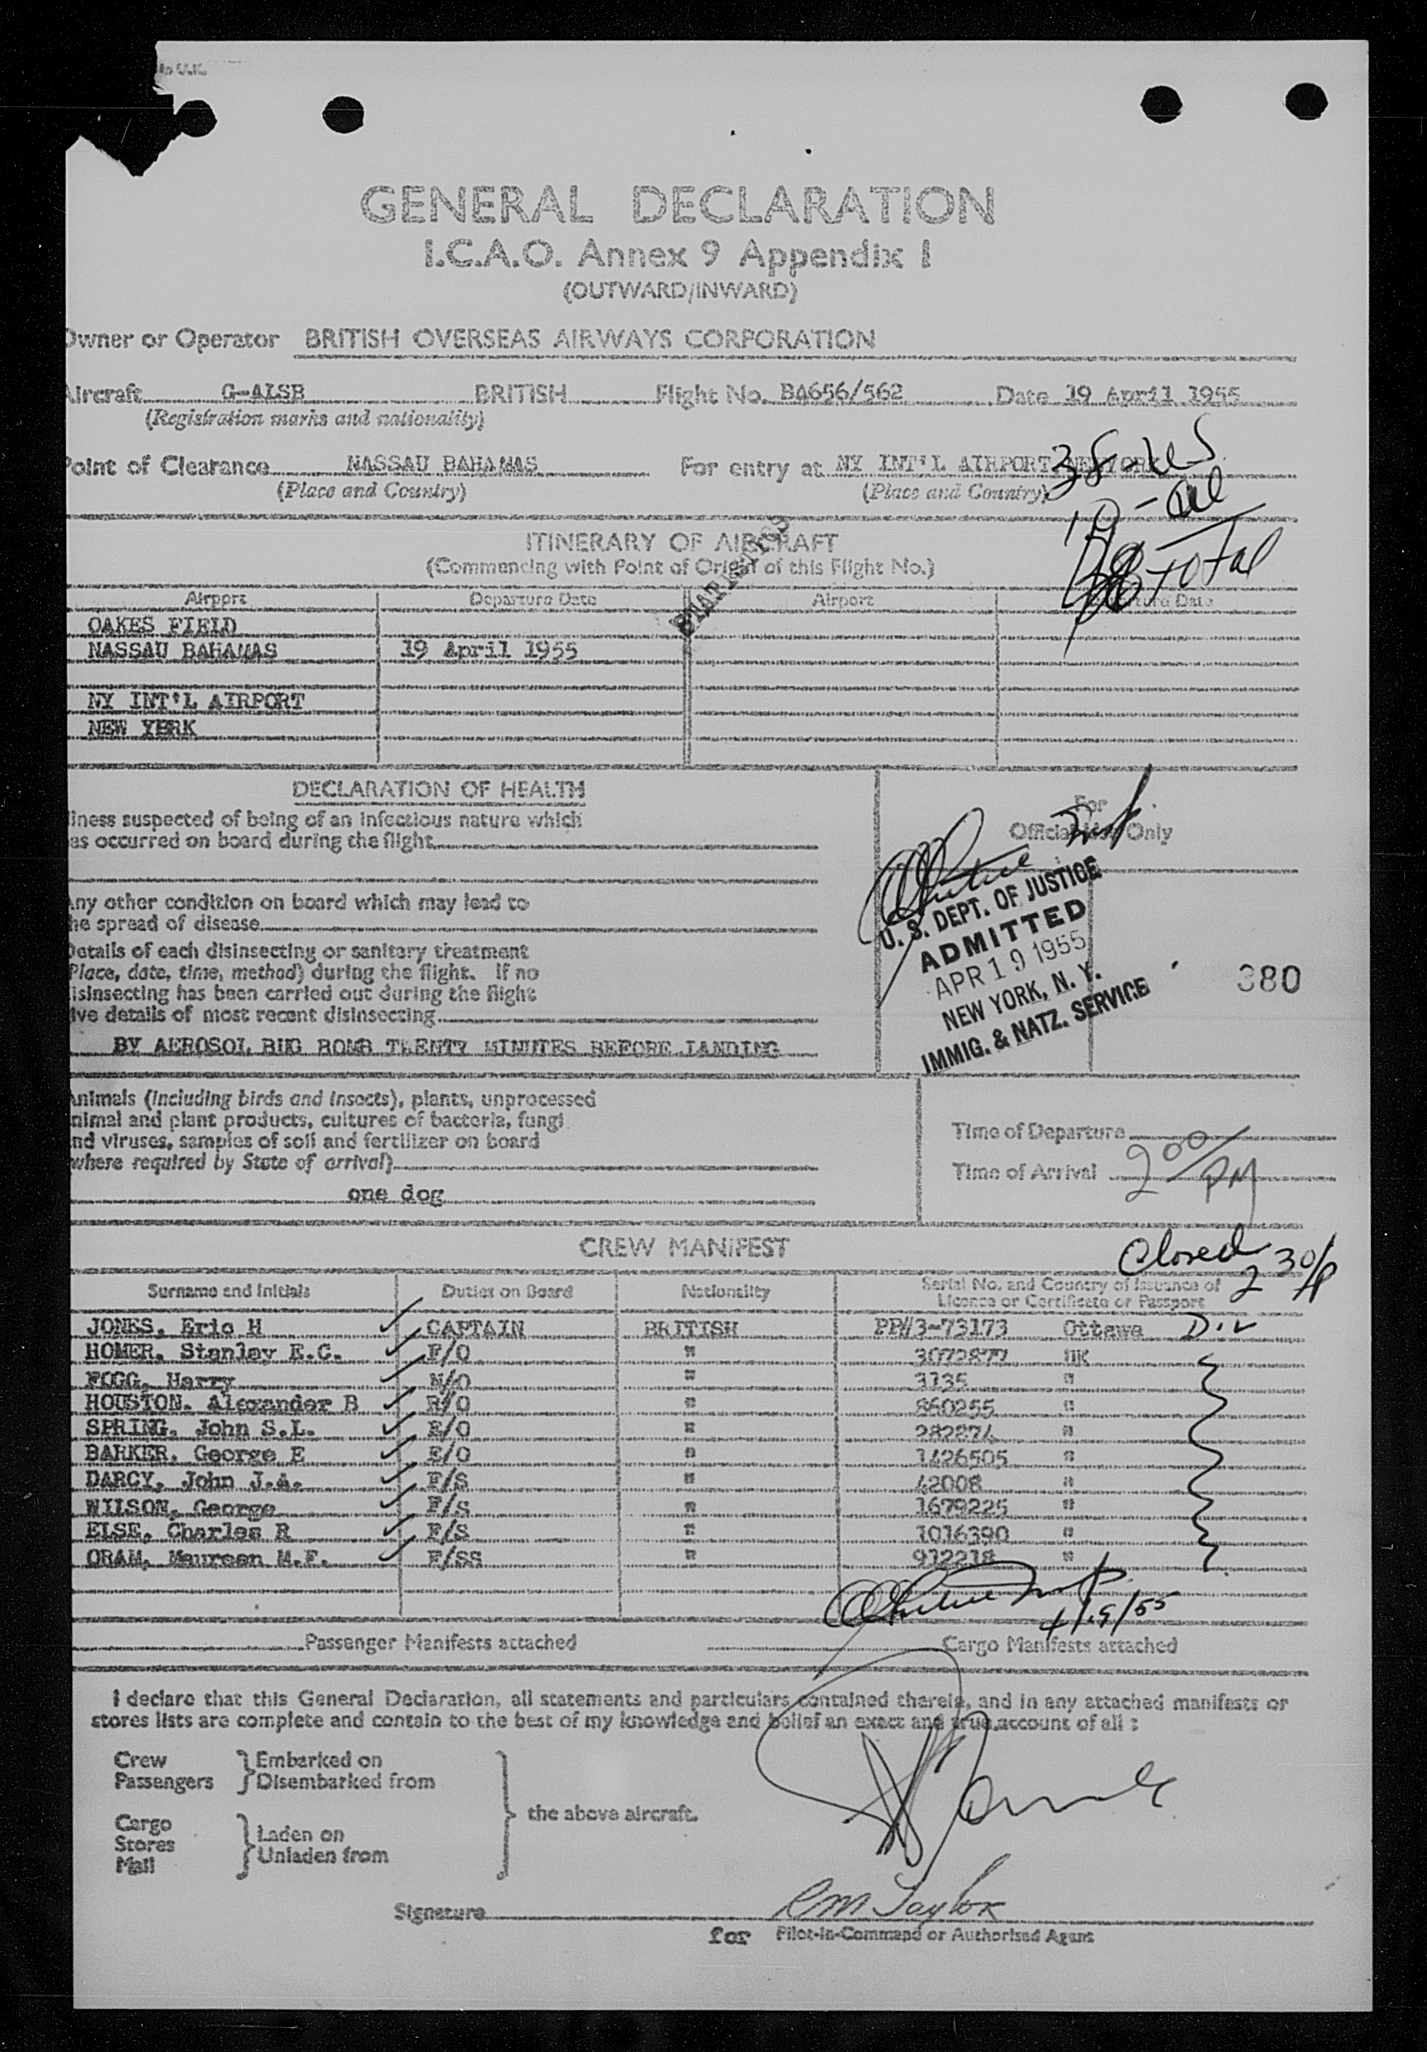 GENERAL DECLARATION
I.C.A.O. Annex 9 Appendix I
(OUTWARD/INWARD)
Owner or Operator BRITISH OVERSEAS AIRWAYS CORPORATION
Aircraft G-ALSB BRITISH Flight No. BA656/562 Date 19 April 1955
(Registration marks and nationality)
Point of Clearance NASSAU BAHAMAS For entry at NY INT'L AIRPORT NEW YORK
(Place and Country) (Place and Country)
38
10 -
48 Total
ITINERARY OF AIRCRAFT
(Commencing with Point of Origin of this Flight No.)
STATISTICS
Airport Departure Date Airport Departure Date
OAKES FIELD
NASSAU BAHAMAS 19 April 1955
NY INT'L AIRPORT
NEW YERK
DECLARATION OF HEALTH
For
Official Use Only
llness suspected of being of an infectious nature which
as occurred on board during the flight
Any other condition on board which may lead to
he spread of disease
Details of each disinsecting or sanitary treatment
Place, date, time, method) during the flight. If no
isinsecting has been carried out during the flight
ive details of most recent disinsecting
BY AEROSOL BUG BOMB TWENTY MINUTES BEFORE LANDING
U. S. DEPT. OF JUSTICE
ADMITTED
APR 19 1955
NEW YORK, N. Y.
IMMIG. & NATZ. SERVICE
380
Animals (including birds and insects), plants, unprocessed
nimal and plant products, cultures of bacteria, fungi
nd viruses, samples of soil and fertilizer on board
where required by State of arrival)
one dog
Time of Departure
Time of Arrival 2 00/PM
Closed 2 30/P
CREW MANIFEST
Surname and Initials Duties on Board Nationality Serial No. and Country of Issuance of
Licence or Certificate or Passport
JONES, Eric H CAPTAIN BRITISH PP#3-73173 Ottawa
HOMER, Stanley E.C. F/O " 3072877 UK
FOGG, Harry N/O " 3135 "
HOUSTON, Alexander B R/O " 860255 "
SPRING, John S.L. E/O " 282274 "
BARKER, George E E/O " 1426505 "
DARCY, John J.A. F/S " 42008 "
WILSON, George F/S " 1679225 "
ELSE, Charles R F/S " 1016390 "
ORAM, Maureen M.F. F/SS " 912218 "
4/19/55
Passenger Manifests attached Cargo Manifests attached
I declare that this General Declaration, all statements and particulars contained therein, and in any attached manifests or
stores lists are complete and contain to the best of my knowledge and belief an exact and true account of all :
Crew
Passengers
Embarked on
Disembarked from
Cargo
Stores
Mail
Laden on
Unladen from
the above aircraft.
Signature RM Taylor
for Pilot-in-Command or Authorised Agent